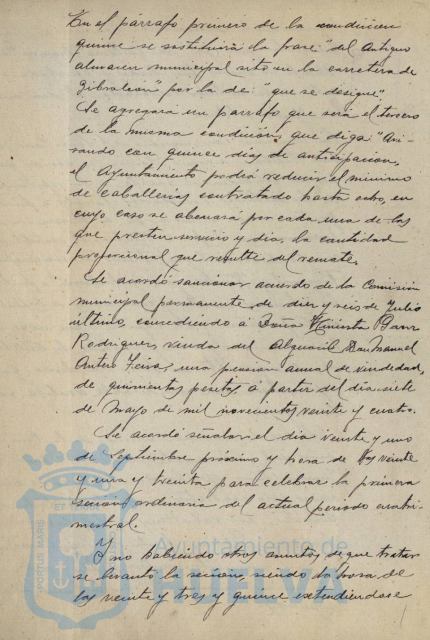 En el párrafo primero de la condición
quince se sustituirá la frase: "del Antiguo
almacen municipal sito en la carretera de
Gibraleón" por la de: "que se designe".
Se agregará un párrafo que será el tercero
de la misma condición, que diga: "Avi-
sando con quince días de anticipacion,
el Ayuntamiento podrá reducir el mínimo
de caballerías contratado hasta ocho, en
cuyo caso se abonará por cada una de las
que presten servicio y dia, la cantidad
proporcional que resulte del remate.
Se acordó sancionar acuerdo de la Comisión
municipal permanente, de diez y seis de Julio
último, concediendo á Doña
Rodriguez, viuda del Alguacil Don Manuel
Antero, una pension anual de viudedad,
de quinientas pesetas á partir del dia siete
de Mayo de mil novecientos veinte y cuatro.
Se acordó señalar el dia veinte y uno
de Septiembre próximo y hora de las veinte
y una y treinta para celebrar la primera
sesion ordinaria del actual periodo cuatri-
mestral.
Y
no habiendo otros asuntos de que tratar
se levantó la sesion, siendo la hora de
las veinte y tres y quince extendiendose
PORTUS MARIS
Ayuntamiento de
HUELVA